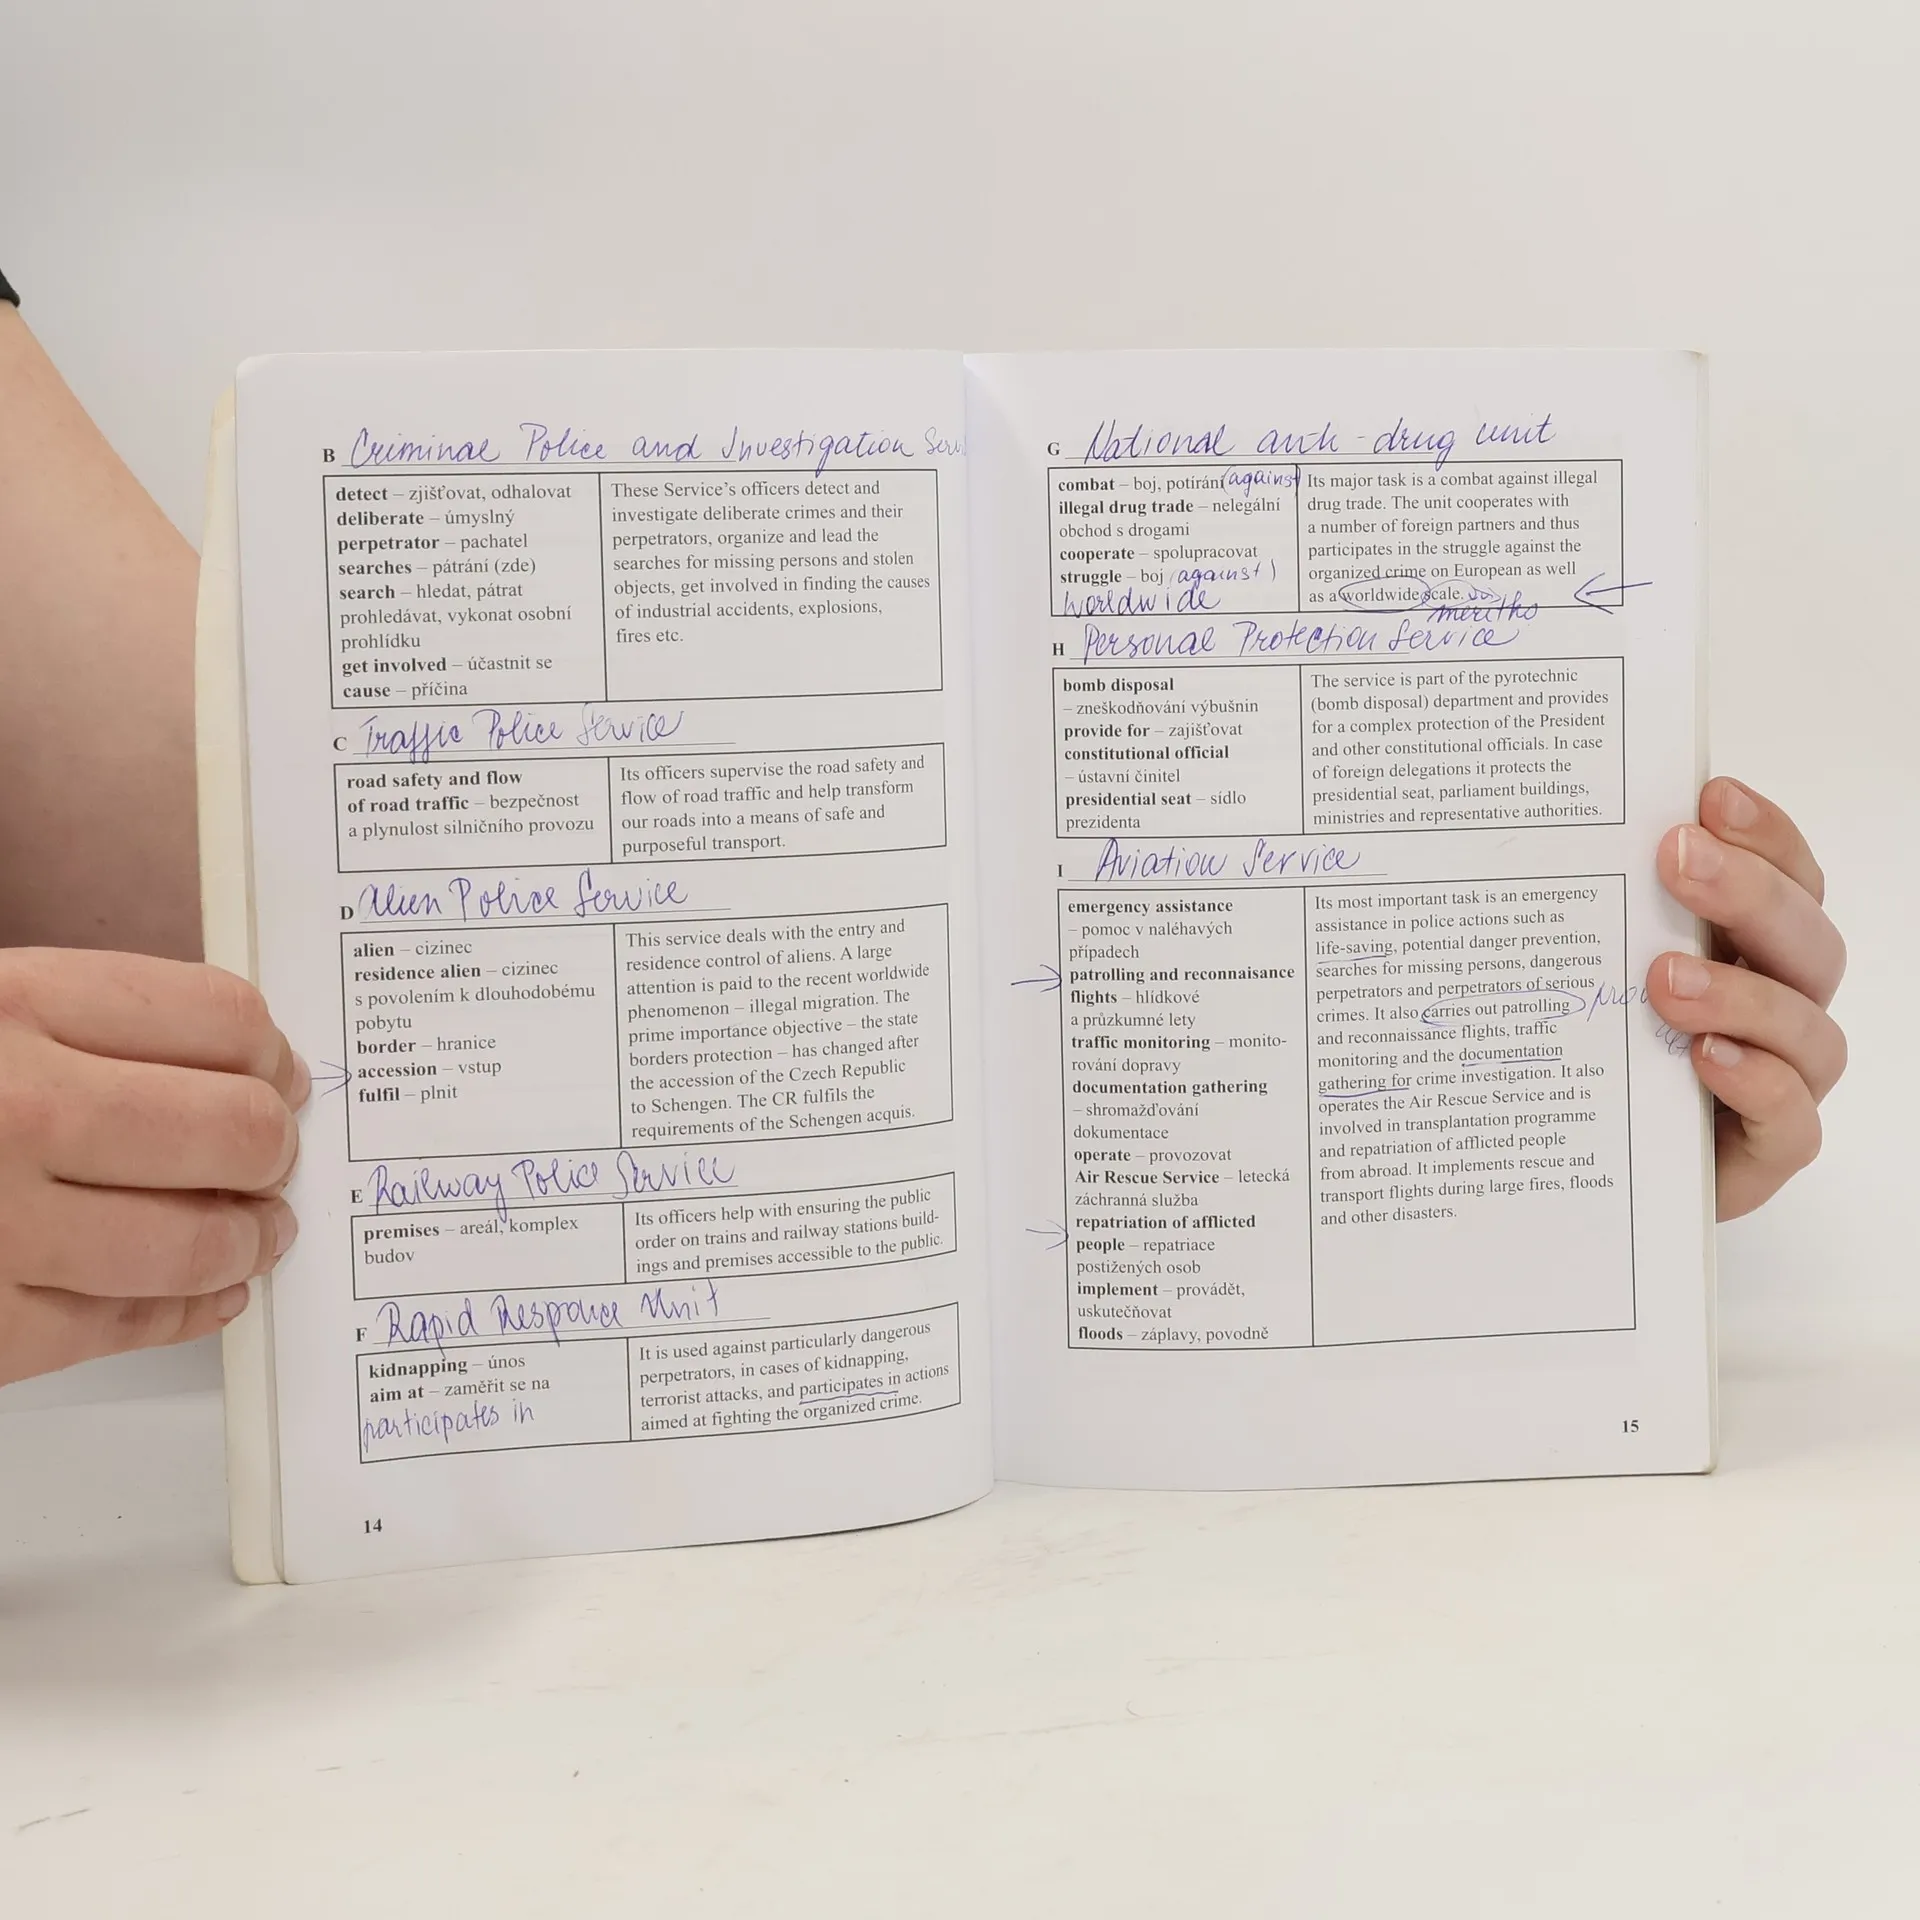 B Criminal Police and Investigation
detect – zjišťovat, odhalovat
deliberate – úmyslný
perpetrator – pachatel
searches – pátrání (zde)
search – hledat, pátrat
prohledávat, vykonat osobní
prohlídku
get involved – účastnit se
cause – příčina
These Service's officers detect and
investigate deliberate crimes and their
perpetrators, organize and lead the
searches for missing persons and stolen
objects, get involved in finding the causes
of industrial accidents, explosions,
fires etc.
C Traffic Police Service
road safety and flow
of road traffic – bezpečnost
a plynulost silničního provozu
Its officers supervise the road safety and
flow of road traffic and help transform
our roads into a means of safe and
purposeful transport.
D Alien Police Service
alien – cizinec
residence alien – cizinec
s povolením k dlouhodobému
pobytu
border – hranice
accession – vstup
fulfil – plnit
This service deals with the entry and
residence control of aliens. A large
attention is paid to the recent worldwide
phenomenon – illegal migration. The
prime importance objective – the state
borders protection – has changed after
the accession of the Czech Republic
to Schengen. The CR fulfils the
requirements of the Schengen acquis.
E Railway Police Service
premises – areál, komplex
budov
Its officers help with ensuring the public
order on trains and railway stations build-
ings and premises accessible to the public.
F Rapid Responce Unit
kidnapping – únos
aim at – zaměřit se na
participates in
It is used against particularly dangerous
perpetrators, in cases of kidnapping,
terrorist attacks, and participates in actions
aimed at fighting the organized crime.
14
G National anti-drug unit
combat – boj, potírání (against)
illegal drug trade – nelegální
obchod s drogami
cooperate – spolupracovat
struggle – boj (against)
worldwide
Its major task is a combat against illegal
drug trade. The unit cooperates with
a number of foreign partners and thus
participates in the struggle against the
organized crime on European as well
as a worldwide scale.
H Personal Protection Service
bomb disposal
– zneškodňování výbušnin
provide for – zajišťovat
constitutional official
– ústavní činitel
presidential seat – sídlo
prezidenta
The service is part of the pyrotechnic
(bomb disposal) department and provides
for a complex protection of the President
and other constitutional officials. In case
of foreign delegations it protects the
presidential seat, parliament buildings,
ministries and representative authorities.
I Aviation Service
emergency assistance
– pomoc v naléhavých
případech
patrolling and reconnaisance
flights – hlídkové
a průzkumné lety
traffic monitoring – monito-
rování dopravy
documentation gathering
– shromažďování
dokumentace
operate – provozovat
Air Rescue Service – letecká
záchranná služba
repatriation of afflicted
people – repatriace
postižených osob
implement – provádět,
uskutečňovat
floods – záplavy, povodně
Its most important task is an emergency
assistance in police actions such as
life-saving, potential danger prevention,
searches for missing persons, dangerous
perpetrators and perpetrators of serious
crimes. It also carries out patrolling
and reconnaissance flights, traffic
monitoring and the documentation
gathering for crime investigation. It also
operates the Air Rescue Service and is
involved in transplantation programme
and repatriation of afflicted people
from abroad. It implements rescue and
transport flights during large fires, floods
and other disasters.
15